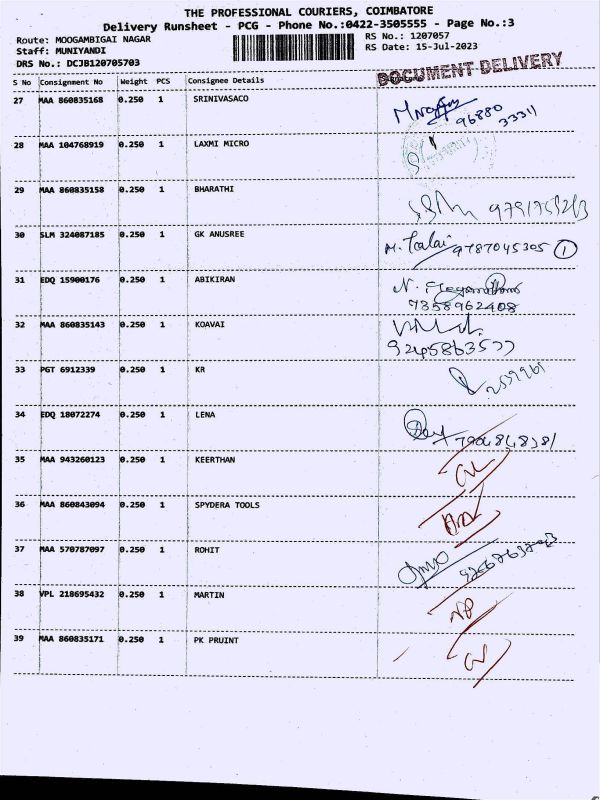 THE PROFESSIONAL COURIERS, COIMBATORE
Delivery Runsheet - PCG - Phone No.:0422-3505555 - Page No.:3
Route: MOOGAMBIGAI NAGAR
RS No.: 1207057
Staff: MUNIYANDI
RS Date: 15-Jul-2023
DRS No.: DCJB120705703
DOCUMENT DELIVERY
S No Consignment No Weight PCS Consignee Details
27 MAA 860835168 0.250 1 SRINIVASACO
96880
33311
28 MAA 104768919 0.250 1 LAXMI MICRO
29 MAA 860835158 0.250 1 BHARATHI
30 SLM 324087185 0.250 1 GK ANUSREE M. Kalai 9787045305 1
31 EDQ 15900176 0.250 1 ABIKIRAN
7358962408
32 MAA 860835143 0.250 1 KOAVAI
9245863577
33 PGT 6912339 0.250 1 KR
34 EDQ 18072274 0.250 1 LENA
35 MAA 943260123 0.250 1 KEERTHAN
36 MAA 860843094 0.250 1 SPYDERA TOOLS
37 MAA 570787097 0.250 1 ROHIT
38 VPL 218695432 0.250 1 MARTIN
39 MAA 860835171 0.250 1 PK PRUINT